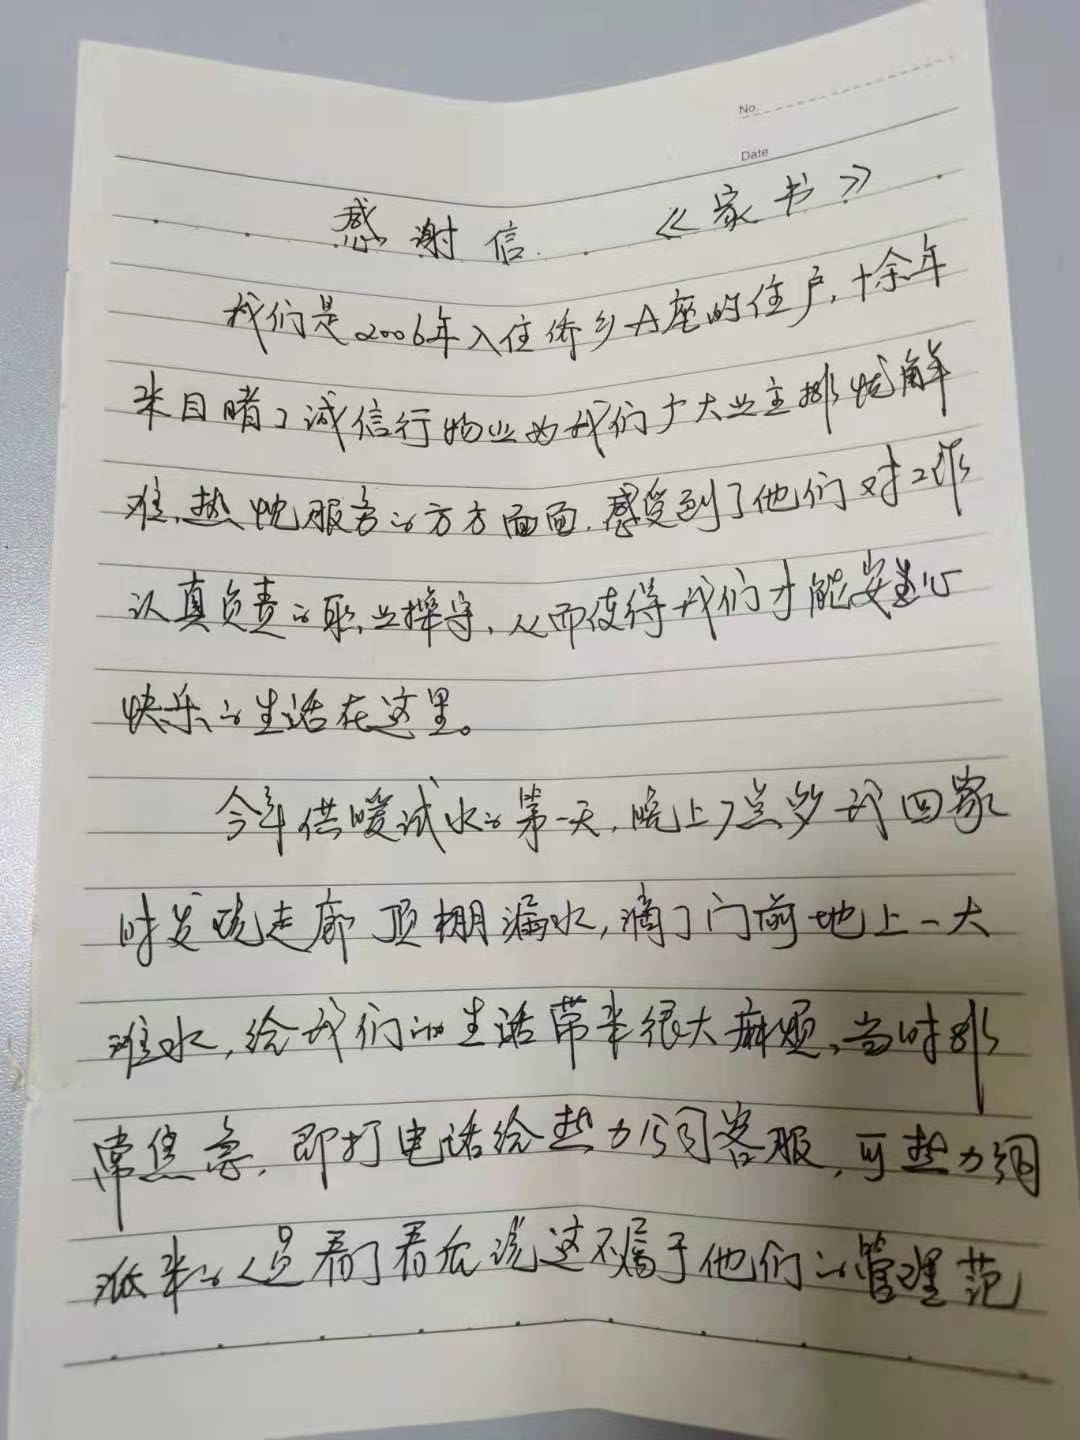 No.
Date
感谢信 《家书》
我们是2006年入住侨乡A座的住户，十余年
来目睹了诚信行物业为我们广大业主排忧解
难、热忱服务的方方面面，感受到了他们对工作
认真负责的职业操守，从而使得我们才能安心
快乐的生活在这里。
今年供暖试水的第一天，晚上7点多我回家
时发现走廊顶棚漏水，滴了门前地上一大
滩水，给我们的生活带来很大麻烦，当时非
常焦急，即打电话给热力公司客服，可热力公司
派来的人员看了看后说这不属于他们的管理范